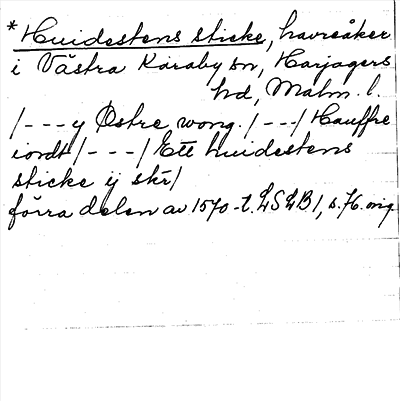 *Huidestens sticke, havreåker
i Västra Karaby sn, Harjagers
hd, Malm. l.
/---y Østre wong./---/Hauffre
iordt/---/Ett huidestens
sticke ij skr/
förra delen av 1570-t. LSLB1, s. 76. orig